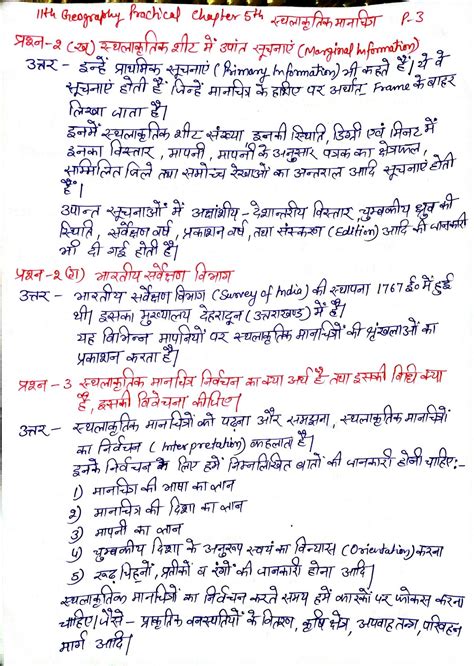 11th Geography Practical Chapter 5th स्थलाकृतिक मानचित्र P-3
प्रश्न-2 (ख) स्थलाकृतिक शीट में उपांत सूचनाएं (Marginal Information)
उत्तर - इन्हें प्राथमिक सूचनाएं (Primary Information) भी कहते हैं। ये वे
सूचनाएं होती हैं जिन्हें मानचित्र के हाशिए पर अर्थात् Frame के बाहर
लिखा जाता है।
इनमें स्थलाकृतिक शीट संख्या इनकी स्थिति, डिग्री एवं मिनट में
इनका विस्तार, मापनी, मापनी के अनुसार पत्रक का क्षेत्रफल,
सम्मिलित जिले तथा समोच्च रेखाओं का अन्तराल आदि सूचनाएं होती
हैं।
उपान्त सूचनाओं में अक्षांशीय-देशान्तरीय विस्तार चुम्बकीय ध्रुव की
स्थिति, सर्वेक्षण वर्ष, प्रकाशन वर्ष, तथा संस्करण (Edition) आदि की जानकारी
भी दी गई होती है।
प्रश्न-2 (ग) भारतीय सर्वेक्षण विभाग
उत्तर - भारतीय सर्वेक्षण विभाग (Survey of India) की स्थापना 1767 ई० में हुई
थी। इसका मुख्यालय देहरादून (उत्तराखण्ड) में है।
यह विभिन्न मापनियों पर स्थलाकृतिक मानचित्रों की श्रृंखलाओं का
प्रकाशन करता है।
प्रश्न-3 स्थलाकृतिक मानचित्र निर्वचन का क्या अर्थ है तथा इसकी विधि क्या
है, इसकी विवेचना कीजिए।
उत्तर - स्थलाकृतिक मानचित्रों को पढ़ना और समझना, स्थलाकृतिक मानचित्रों
का निर्वचन (Interpretation) कहलाता है।
इनके निर्वचन के लिए हमें निम्नलिखित बातों की जानकारी होनी चाहिए:-
1) मानचित्र की भाषा का ज्ञान
2) मानचित्र की दिशा का ज्ञान
3) मापनी का ज्ञान
4) चुम्बकीय दिशा के अनुरूप स्वयं का विन्यास (Orientation) करना
5) रूढ़ चिह्नों, प्रतीकों व रंगों की जानकारी होना आदि।
स्थलाकृतिक मानचित्रों का निर्वचन करते समय हमें कारकों पर फोकस करना
चाहिए। जैसे - प्राकृतिक वनस्पतियों के वितरण, कृषि क्षेत्र, अपवाह तन्त्र, परिवहन
मार्ग आदि।